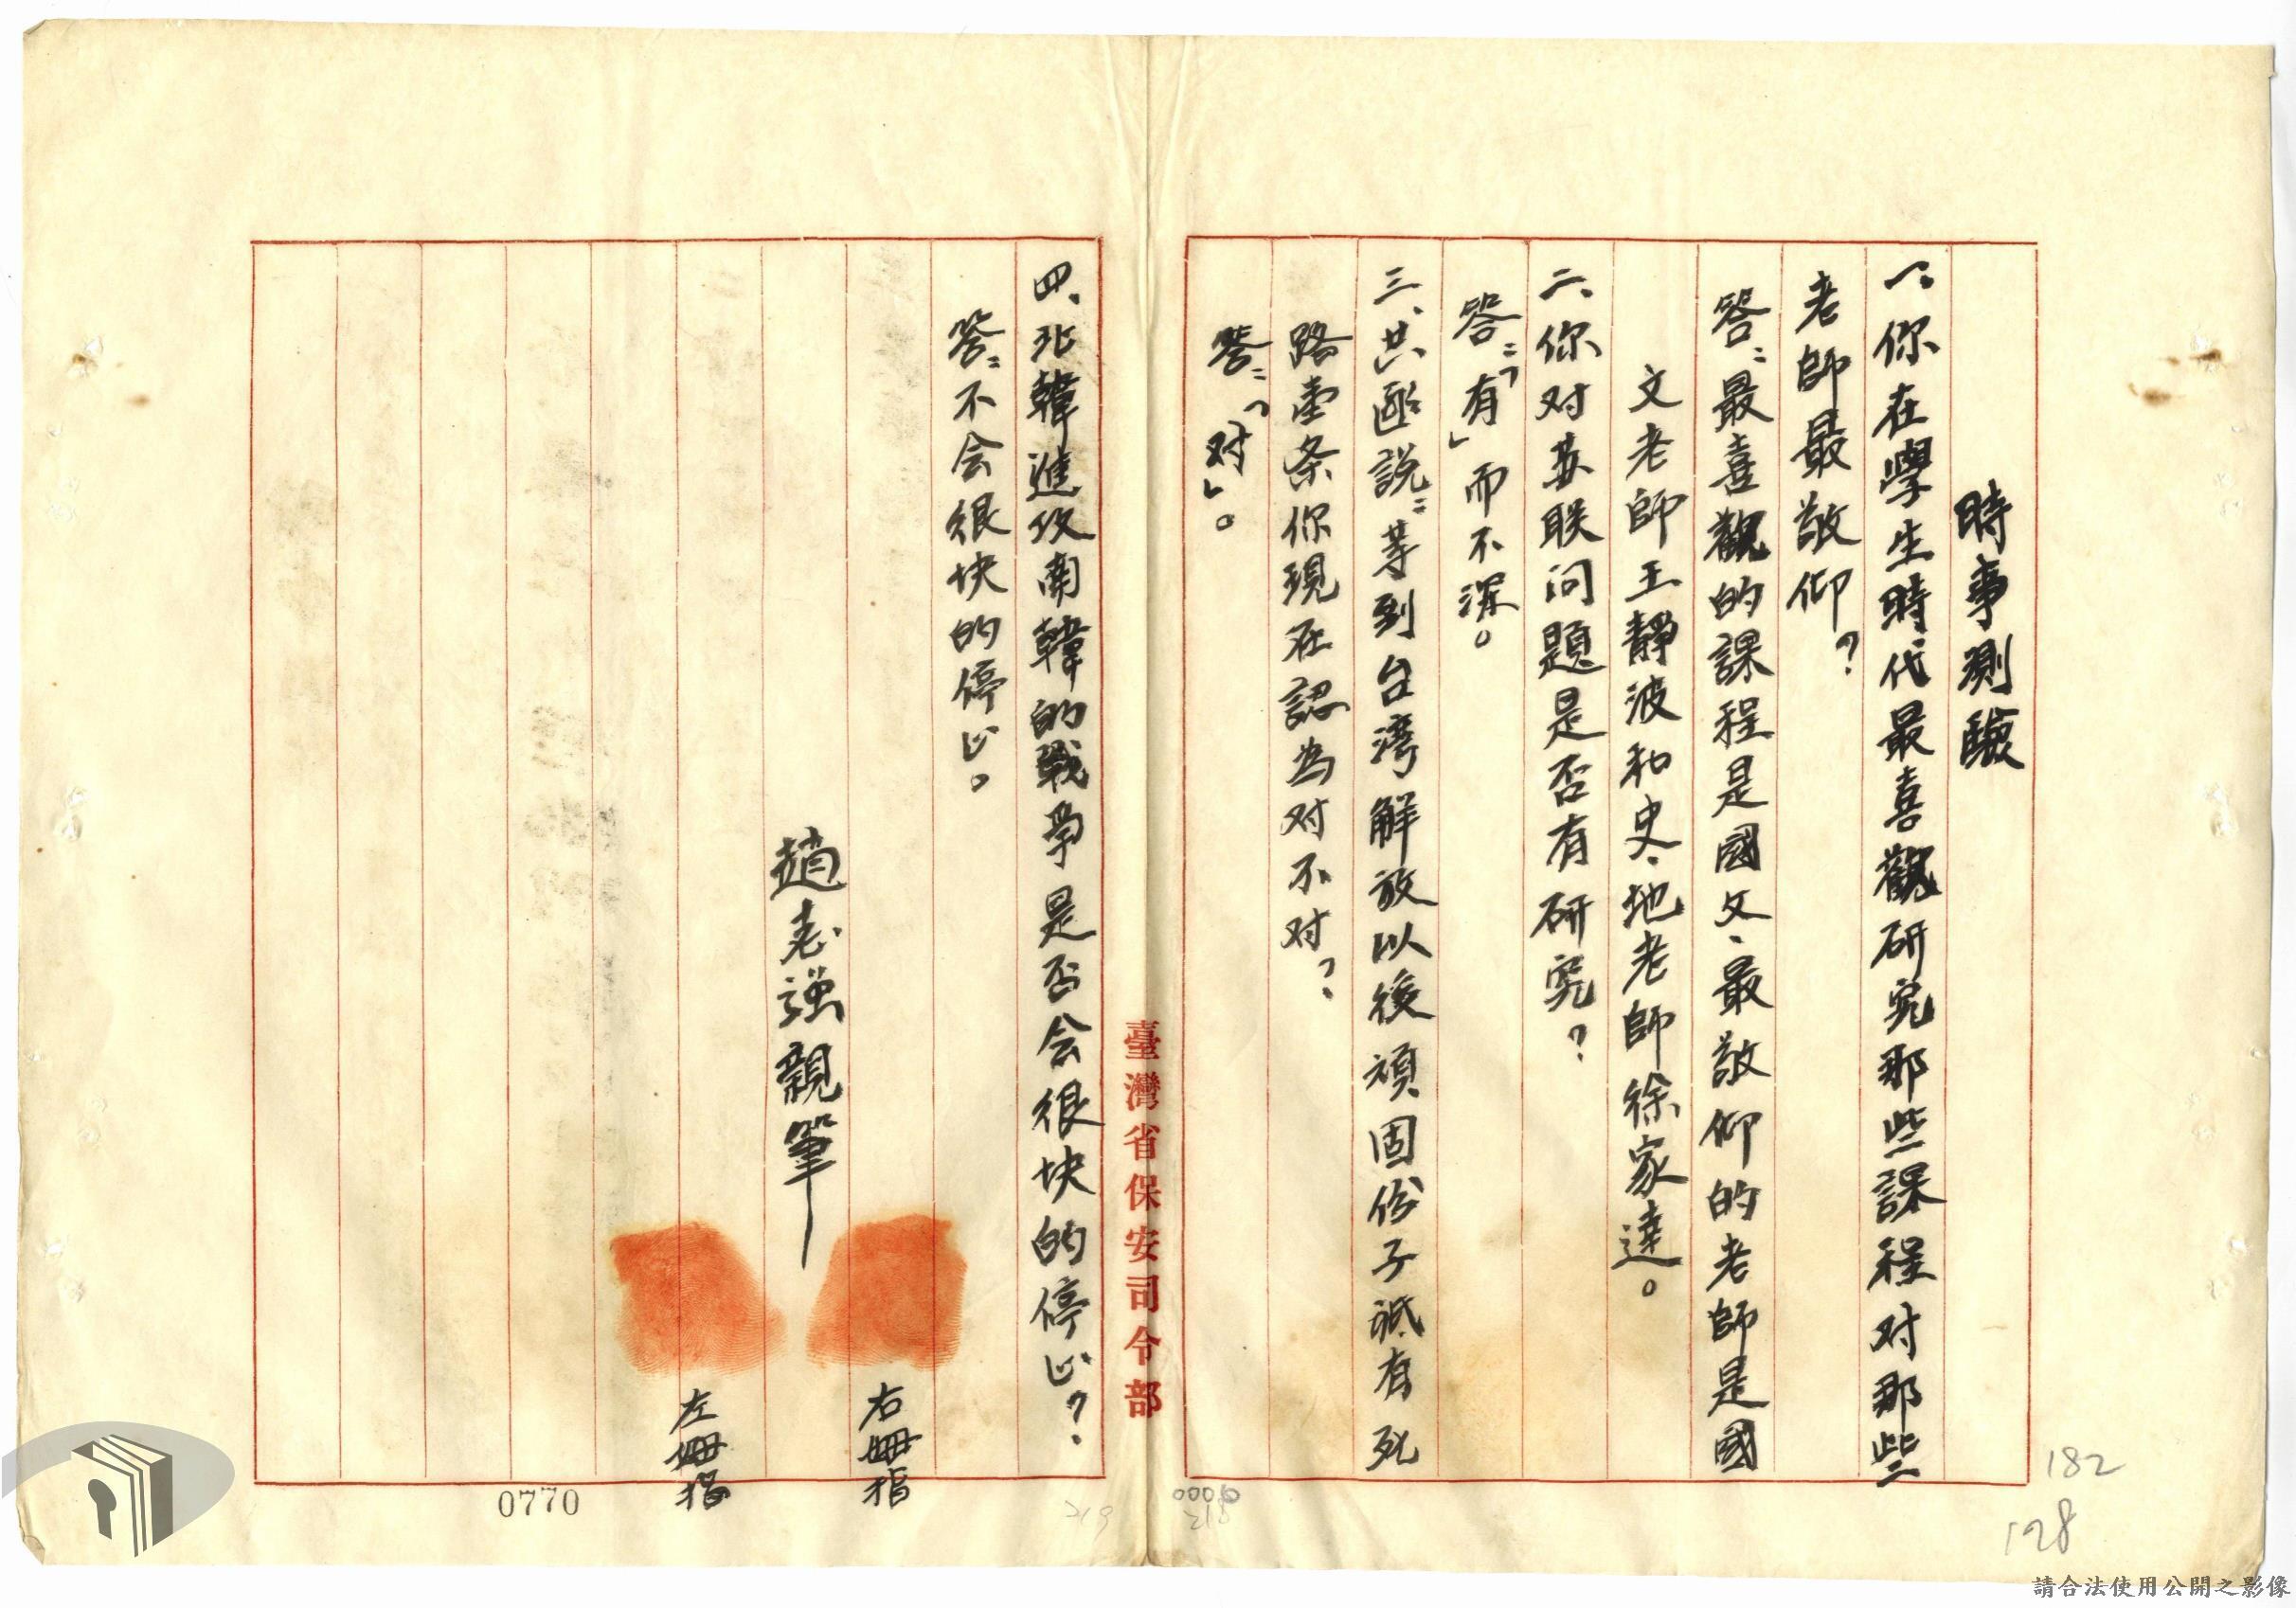 時事測驗
一、你在學生時代最喜觀研究那些課程对那些
老師最敬仰?
答:最喜觀的課程是國文、最敬仰的老師是國
文老師王靜波和史、地老師徐家達。
二、你对苏联问題是否有研究?
答:「有」而不深。
三、共匪説:等到台湾解放以後頑固份子祗有死
路壹条你現在認為对不对?
答:「对」。
四、北韓進攻南韓的戰爭是否会很块的停止?
答:不会很块的停止。
趙志強親筆
右姆指
左姆指
臺灣省保安司令部
0770
219
0006
218
182
128
請合法使用公開之影像